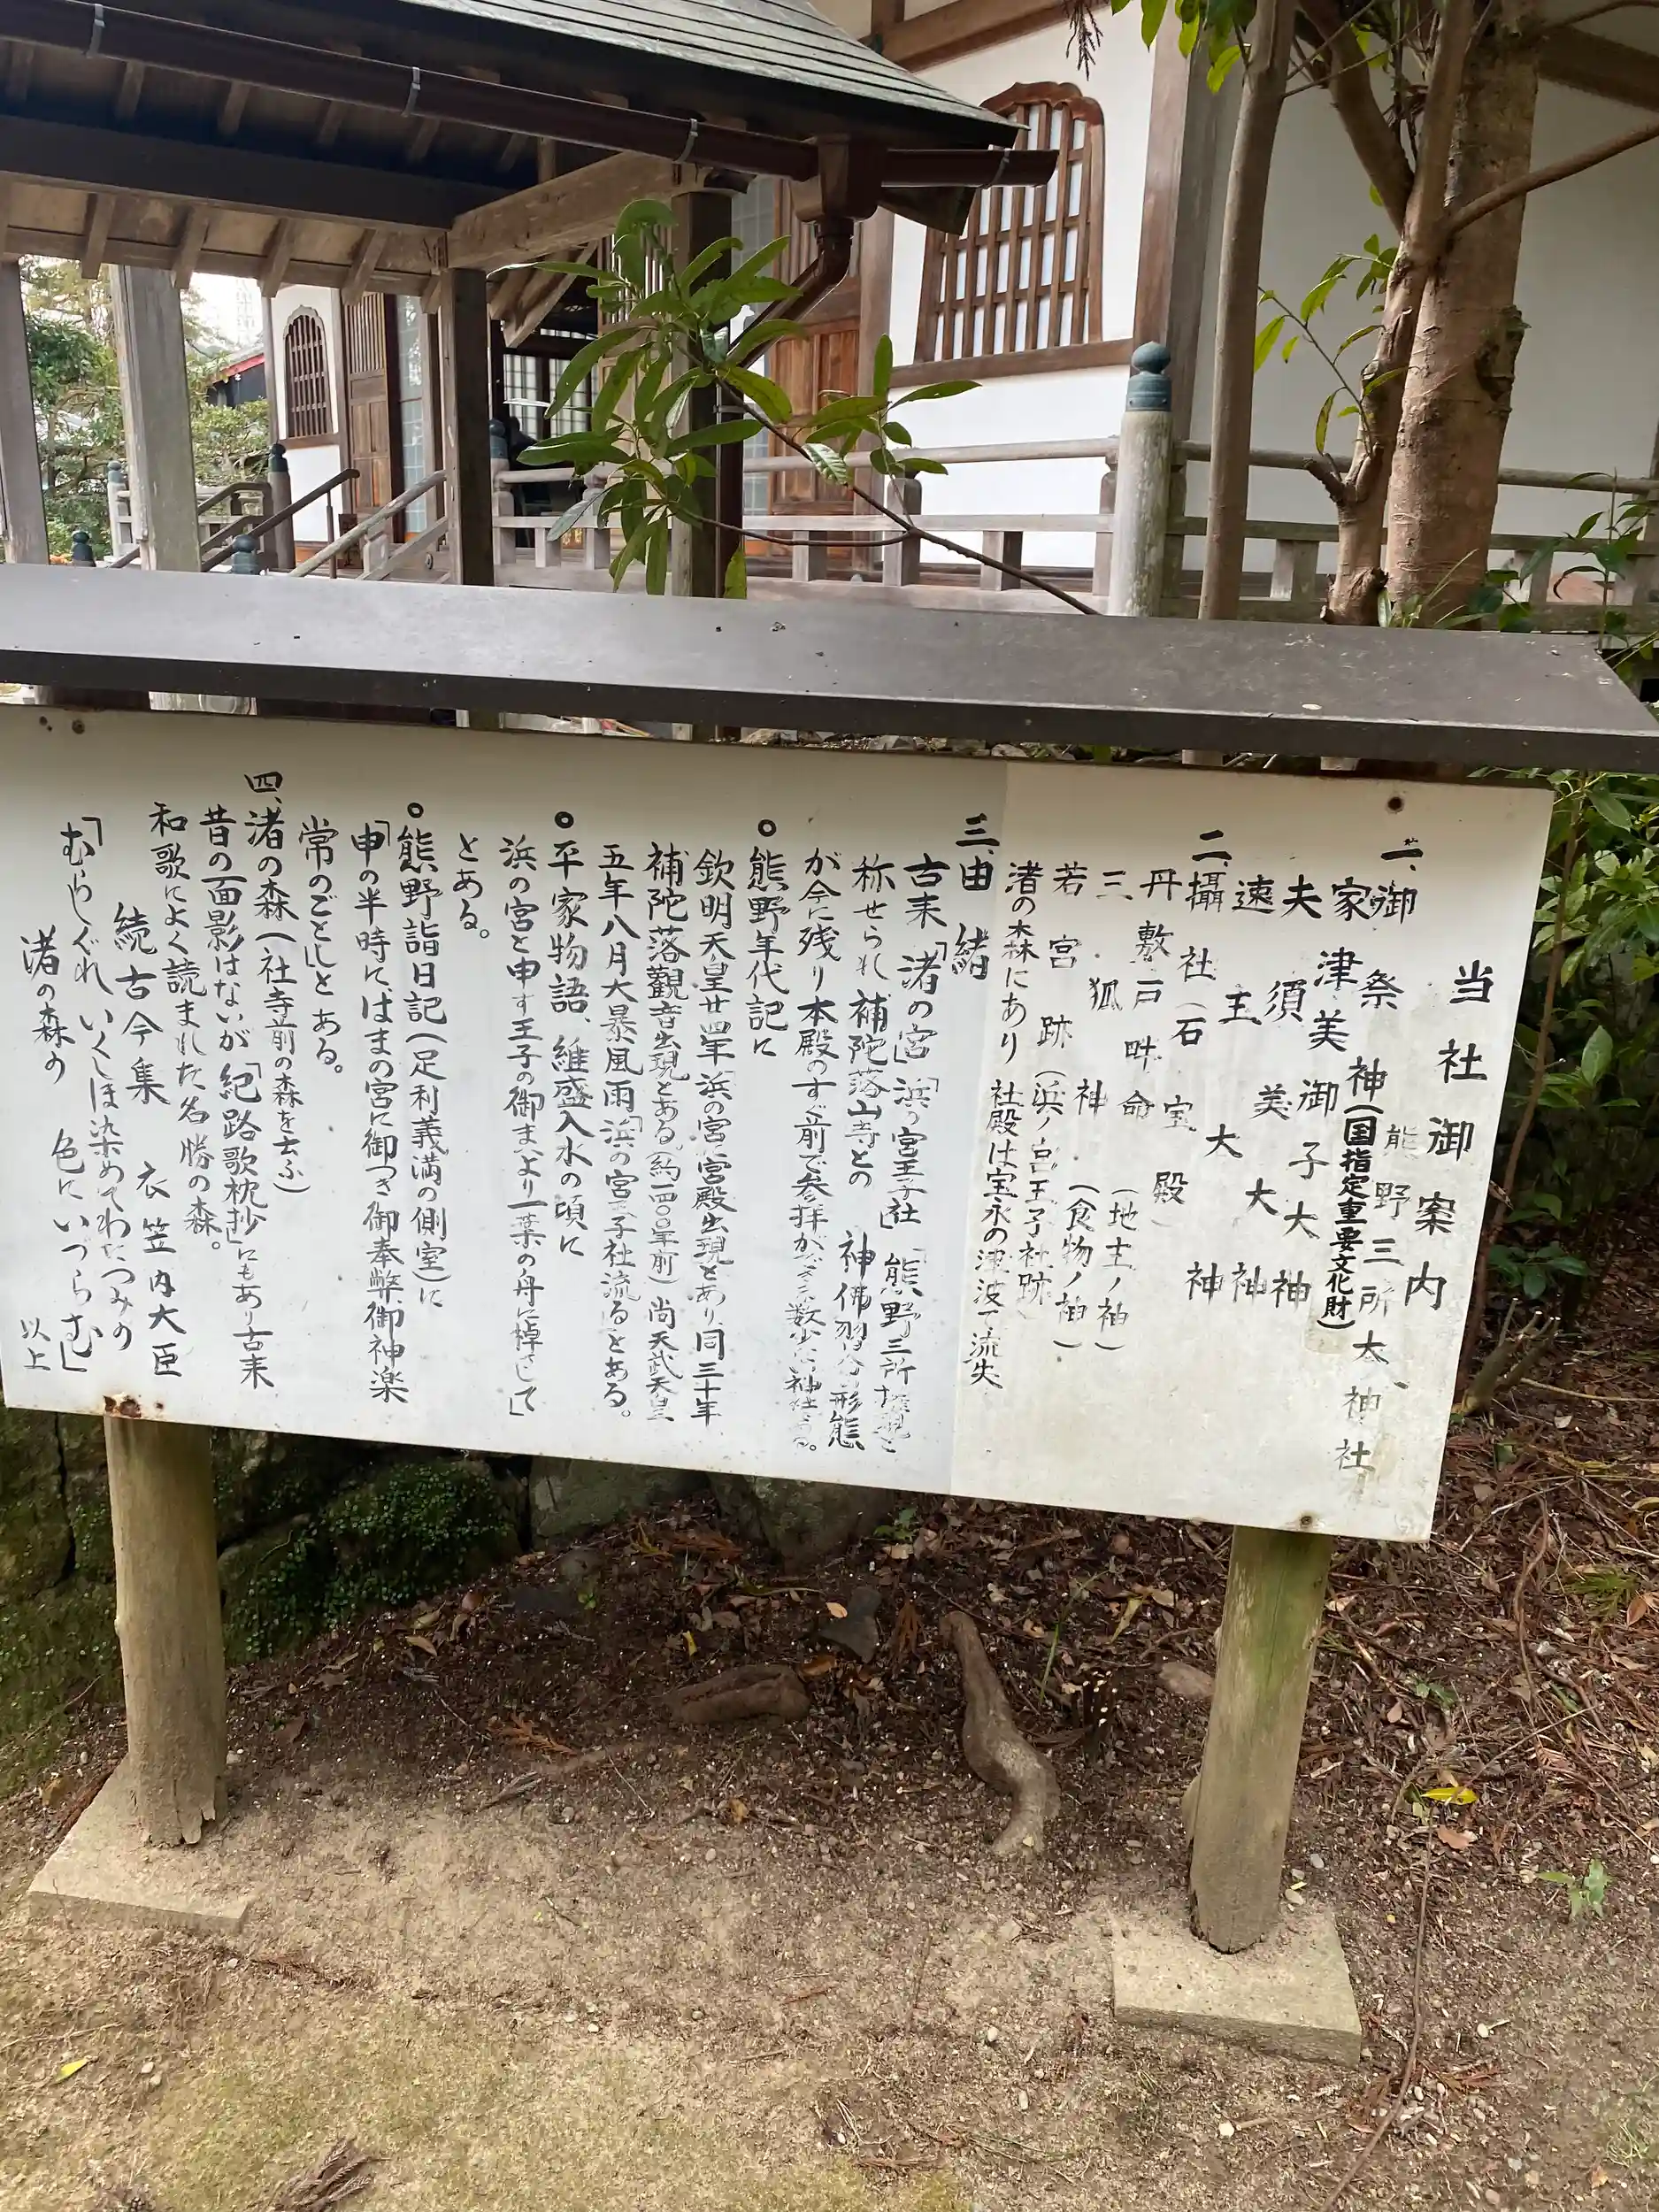 当社御案内
熊野三所大神社
一、御祭神(国指定重要文化財)
家津美御子大神
夫須美大神
速玉大神
二、攝社(石宝殿)
丹敷戸畔命(地主ノ神)
三狐神(食物ノ神)
若宮跡(浜ノ宮王子社跡)
渚の森にあり 社殿は宝永の津波で流失
三、由緒
古来「渚の宮」「浜の宮王子社」「熊野三所権現」と
称せられ補陀落山寺との神佛習合の形態
が今に残り本殿のすぐ前で参拝ができる数少い神社である。
○熊野年代記に
欽明天皇廿四年「浜の宮」宮殿出現とあり、同三十年
補陀落観音出現とある(約一四〇〇年前)尚天武天皇
五年八月大暴風雨「浜の宮王子社流る」とある。
○平家物語、維盛入水の頃に
浜の宮と申す王子の御まへより一葉の舟に棹さして」
とある。
○熊野詣日記(足利義満の側室)に
「申の半時に、はまの宮に御つき御奉幣御神楽
常のごとし」とある。
四、渚の森(社寺前の森を云ふ)
昔の面影はないが「紀路歌枕抄」にもあり古来
和歌によく読まれた名勝の森。
続古今集 衣笠内大臣
「むらしぐれ いくしほ染めてわたつみの
渚の森の 色にいづらむ」
以上